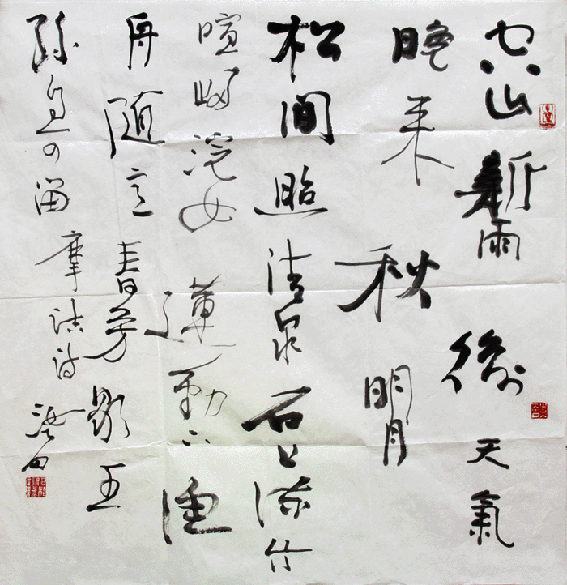 空山新雨後天氣
晚来秋明月
松間照清泉石上流竹
喧歸浣女蓮動下漁
舟随意春芳歇王
孫自可留摩詰詩